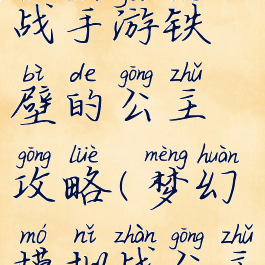 战手游铁
bì de gōng zhǔ
壁的公主
gōng lüè mèng huàn
攻略(梦幻
mó nǐ zhàn gōng zhǔ
模拟战公主